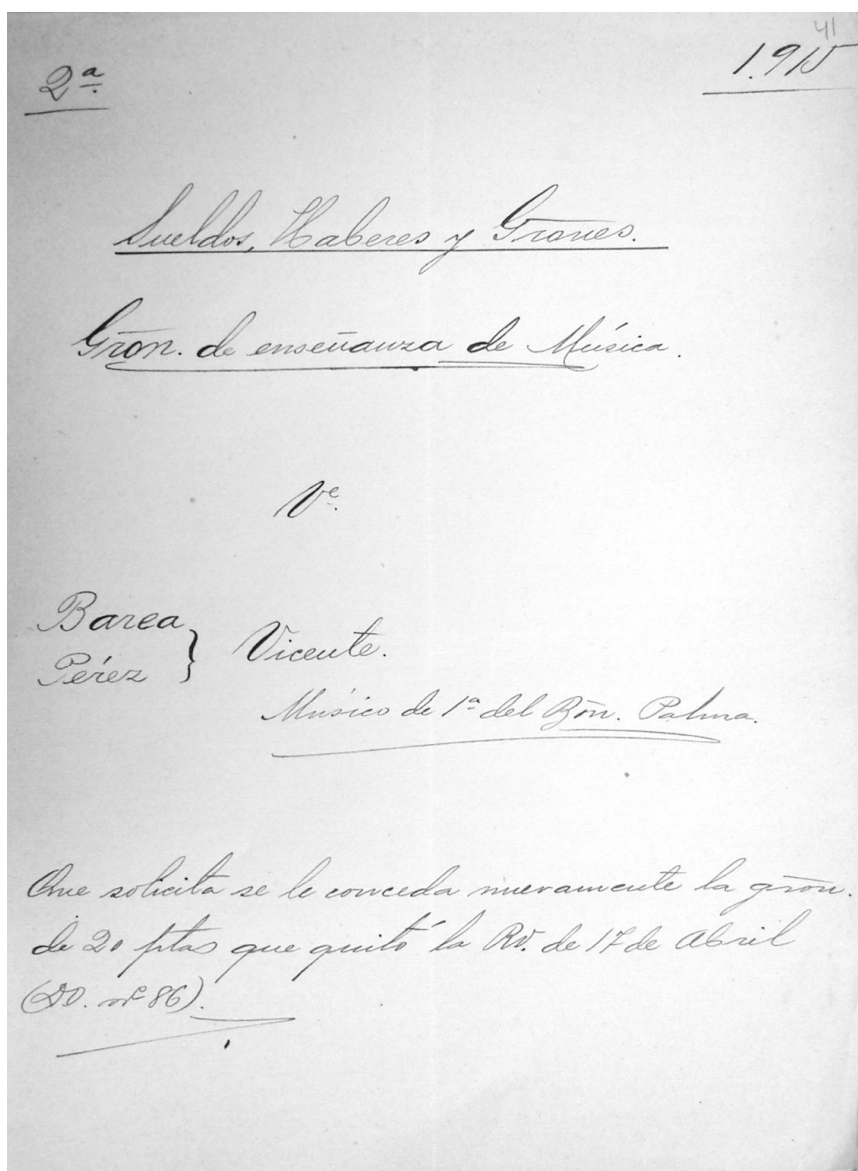 41
2ª
1.915
Sueldos, Haberes y Grones.
Gron. de enseñanza de Música.
Ve.
Barea
Pérez } Vicente.
Músico de 1ª del Bón. Palma.
Que solicita se le conceda nuevamente la grón.
de 20 ptas que quitó la Rl. de 17 de Abril
(DO. nº 86).